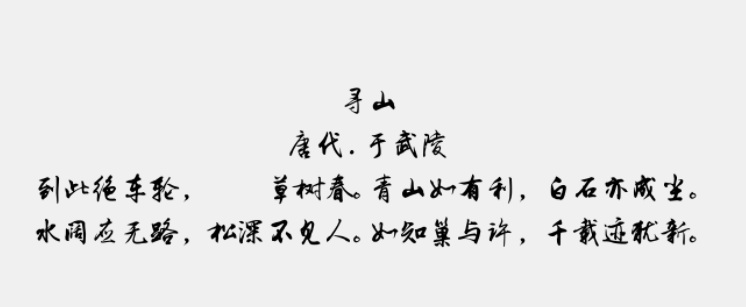 寻山
唐代.于武陵
到此绝车轮， 草树春。青山如有利，白石亦成尘。
水阔应无路，松深不见人。如知巢与许，千载迹犹新。